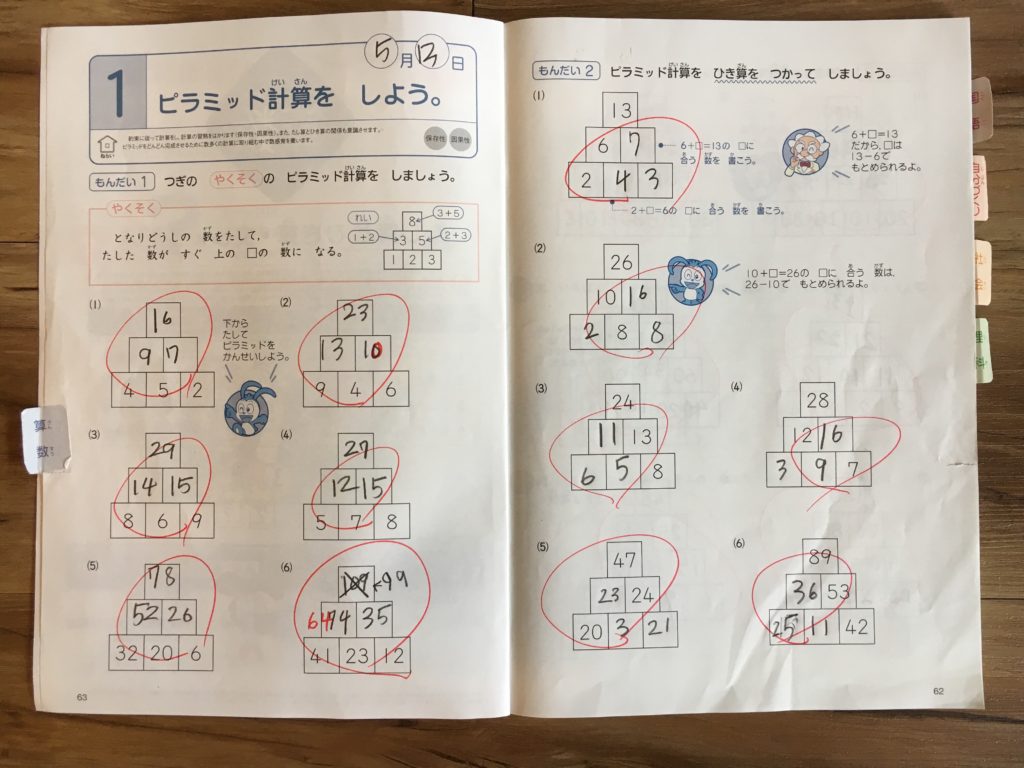 5月12日
1
ピラミッド計算を しよう。
けい さん
ねらい
約束に従って計算をし、計算の習熟をはかります（保存性・因果性）。また、たし算とひき算の関係も意識させます。
ピラミッドをどんどん完成させるために数多くの計算に取り組む中で数感覚を養います。
保存性 因果性
もんだい 1 つぎの やくそく の ピラミッド計算を しましょう。
やくそく
となりどうしの 数をたして,
たした 数が すぐ 上の □の 数に なる。
れい
8
3+5
1+2
3 5
2+3
1 2 3
(1)
16
9 7
4 5 2
下から
たして
ピラミッドを
かんせいしよう。
(2)
23
13 10
9 4 6
(3)
29
14 15
8 6 9
(4)
27
12 15
5 7 8
(5)
78
52 26
32 20 6
(6)
99
64 74 35
41 23 12
63
算数
さん すう
もんだい 2 ピラミッド計算を ひき算を つかって しましょう。
(1)
13
6 7
2 4 3
6+□=13の □に
合う 数を 書こう。
2+□=6の □に 合う 数を 書こう。
6+□=13
だから,□は
13−6で
もとめられるよ。
(2)
26
10 16
2 8 8
10+□=26の □に 合う 数は,
26−10で もとめられるよ。
(3)
24
11 13
6 5 8
(4)
28
12 16
3 9 7
(5)
47
23 24
20 3 21
(6)
89
36 53
25 11 42
62